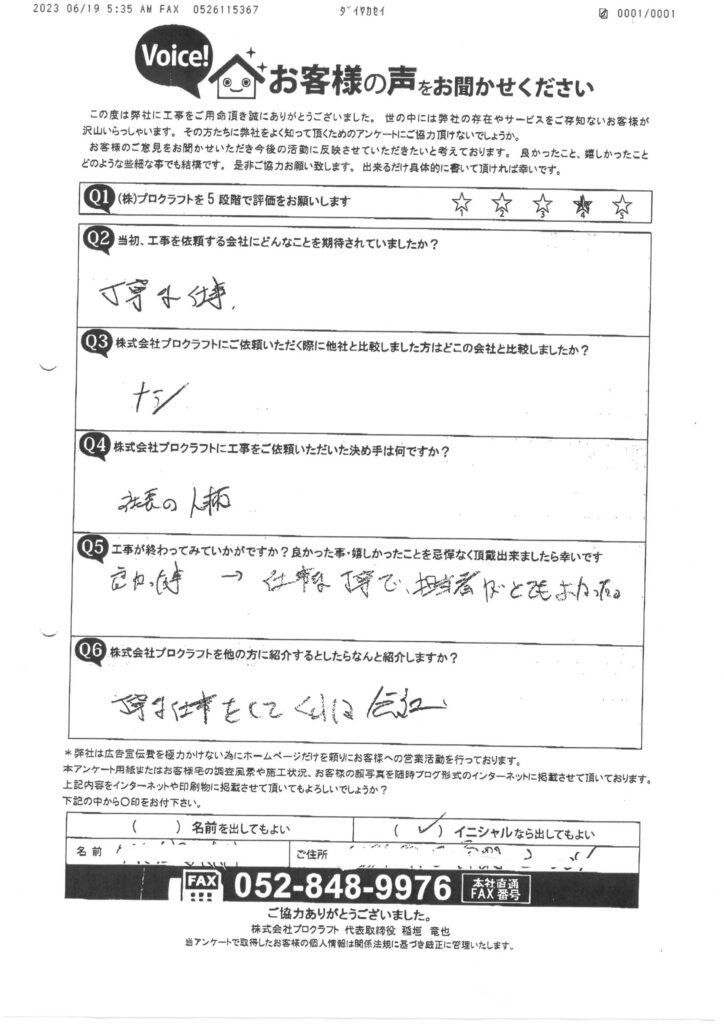 2023 06/19 5:35 AM FAX 0526115367 ﾀﾞｲﾔｶｾｲ 0001/0001
Voice! お客様の声をお聞かせください
この度は弊社に工事をご用命頂き誠にありがとうございました。 世の中には弊社の存在やサービスをご存知ないお客様が
沢山いらっしゃいます。 その方たちに弊社をよく知って頂くためのアンケートにご協力頂けないでしょうか。
お客様のご意見をお聞かせいただき今後の活動に反映させていただきたいと考えております。 良かったこと、嬉しかったこと
どのような些細な事でも結構です。 是非ご協力お願い致します。 出来るだけ具体的に書いて頂ければ幸いです。
Q1 (株)プロクラフトを5段階で評価をお願いします 1 2 3 4 5
Q2 当初、工事を依頼する会社にどんなことを期待されていましたか？
丁寧な仕事、
Q3 株式会社プロクラフトにご依頼いただく際に他社と比較しました方はどこの会社と比較しましたか？
ナシ
Q4 株式会社プロクラフトに工事をご依頼いただいた決め手は何ですか？
社長の人柄
Q5 工事が終わってみていかがですか？良かった事・嬉しかったことを忌憚なく頂戴出来ましたら幸いです
良かった事 → 仕事は丁寧で、担当者がとてもよかった。
Q6 株式会社プロクラフトを他の方に紹介するとしたらなんと紹介しますか？
丁寧な仕事をしてくれる会社
＊弊社は広告宣伝費を極力かけない為にホームページだけを頼りにお客様への営業活動を行っております。
本アンケート用紙またはお客様宅の調査風景や施工状況、お客様の顔写真を随時ブログ形式のインターネットに掲載させて頂いております。
上記内容をインターネットや印刷物に掲載させて頂いてもよろしいでしょうか？
下記の中から〇印をお付下さい。
( ) 名前を出してもよい ( ✓ ) イニシャルなら出してもよい
名前 ご住所
FAX 052-848-9976 本社直通
FAX番号
ご協力ありがとうございました。
株式会社プロクラフト 代表取締役 稲垣 竜也
当アンケートで取得したお客様の個人情報は関係法規に基づき厳正に管理いたします。